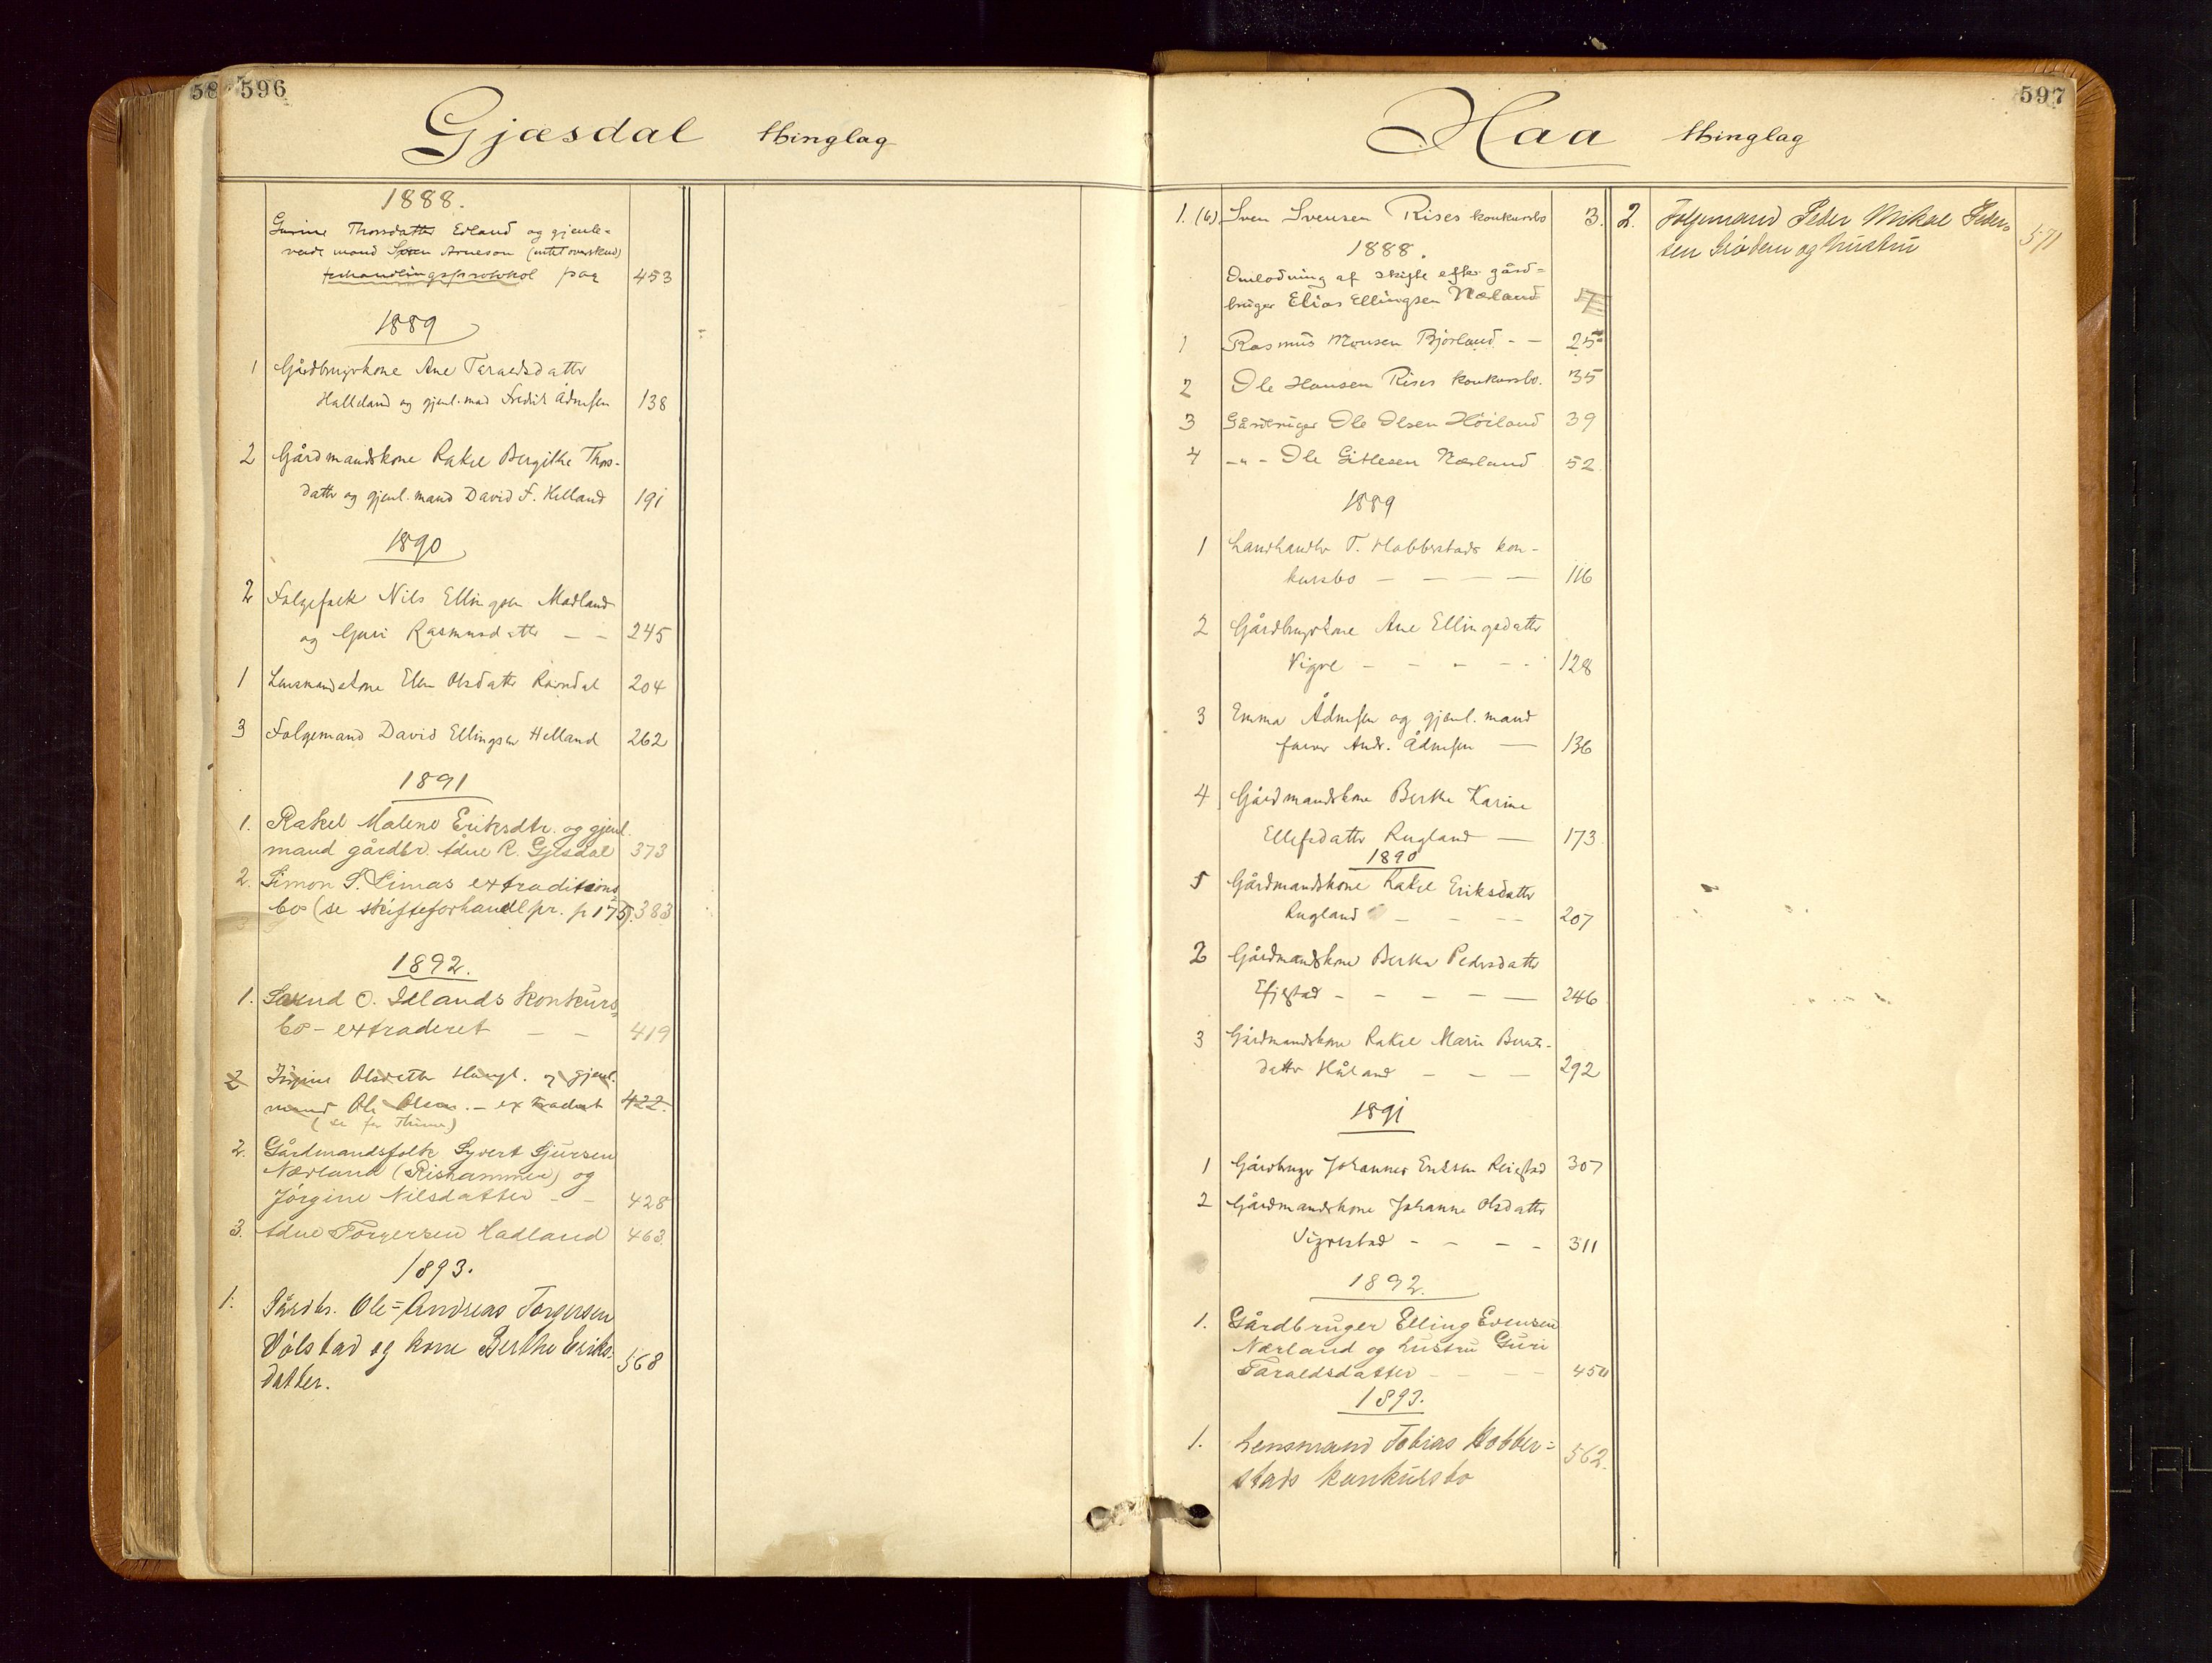 58 596
Gjæsdal thinglag
1888.
Gurine Thorsdatter Edland og gjenle-
vende mand Sven Arneson (intet overskud)
forhandlingsprotokol pag 453
1889
1 Gårdbrugerkone Ane Taraldsdatter
Halleland og gjenl. mad Fredrik Ådnesen 138
2 Gårdmandskone Rakel Bergithe Thors-
datter og gjenl. mand David F. Helland 191
1890
2 Folgefolk Nils Ellingsen Madland
og Guri Rasmusdatter – – 245
1 Lensmandskone Elen Olsdatter Ravndal 204
3 Folgemand David Ellingsen Helland 262
1891
1. Rakel Malene Eriksdtr. og gjenl.
mand gårdbr. Adne R. Gjesdal 373
2. Simon S. Limas extraditions
bo (se skifteforhandl pr. p 175). 383
1892.
1. Svend O. Idlands konkurs-
bo – extraderet – – 419
2 Jörgine Olsdatter og gjenl.
mand Ole Olsen. – extraderet 422.
(se for Thime)
2. Gårdmandsfolk Syvert Sjursen
Nærland (Rishammer) og
Jörgine Nilsdatter – – 428
3. Adne Torgersen Hadland 463.
1893.
1. Gårdbr. Ole-Andreas Torgersen
Vølstad og kone Berthe Eriks-
datter. 568
597
Haa thinglag
1. (6) Sven Svensen Rises konkursbo 3.
1888.
Omlodning af skifte efter gård-
bruger Elias Ellingsen Nærland 17
1 Rasmus Monsen Bjorland - – 25
2 Ole Hansen Rises konkursbo. 35
3 Gårdbruger Ole Olsen Höiland 39
4 –„– Ole Gitlesen Nærland 52.
1889
1 Landhandler T. Hobberstads kon-
kursbo – – – – 116
2 Gårdbrugerkone Ane Ellingsdatter
Vigre – – – – - 128
3 Emma Ådnesen og gjenl. mand
farver Andr. Ådnesen – 136
4 Gårdmandskone Berthe Karine
Ellefsdatter Rugland – 173
1890
1 Gårdmandskone Rakel Eriksdatter
Rugland – – – – 207
2 Gårdmandskone Bertha Pedersdatter
– – – – – 246
3 Gårdmandskone Rakel Marie Bernts-
datter Håland – – – 292
1891
1 Gårdbruger Johannes Eriksen Reiestad 307
2 Gårdmandskone Johanne Olsdatter
Sigrestad – – – – 311
1892.
1. Gårdbruger Elling Evensen
Nærland og hustru Guri
Taraldsdatter – – – – 450
1893.
1. Lensmand Tobias Hobber-
stads konkursbo 562.
2. Folgemand Peder Mikal Peder-
sen Grødem og hustru 571